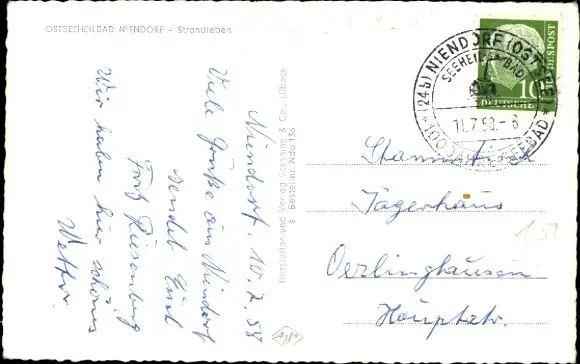 OSTSEEHEILBAD NIENDORF - Strandleben
Niendorf. 10.7.58
Viele Grüße aus Niendorf
sendet Euch
Fritz Riesenberg
Wir haben hier schönes
Wetter.
Hersteller und Verlag Schöning & Co., Lübeck
Bestell.nr. Ndo 136
Agfa
(24b) NIENDORF (OSTSEE)
SEEHEILBAD
11.7.58.-8
100 JAHRE SEEBAD
10
DEUTSCHE BUNDESPOST
Stammtisch
Jägerhaus
Oerlinghausen
Hauptstr.